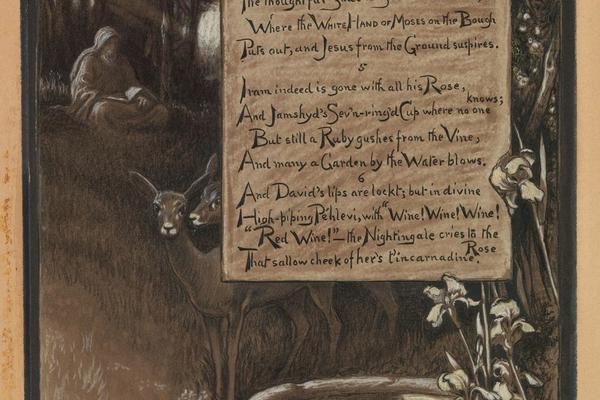 The thoughtful
Where the WHITE HAND of MOSES on the Bough
Puts out, and Jesus from the Ground suspires.
5
Iram indeed is gone with all his Rose,
And Jamshyd's Sev'n-ring'd Cup where no one knows;
But still a Ruby gushes from the Vine,
And many a Garden by the Water blows.
6
And David's lips are lockt; but in divine
High-piping Péhlevi, with "Wine! Wine! Wine!
"Red Wine!"—the Nightingale cries to the Rose
That sallow cheek of her's t'incarnadine.